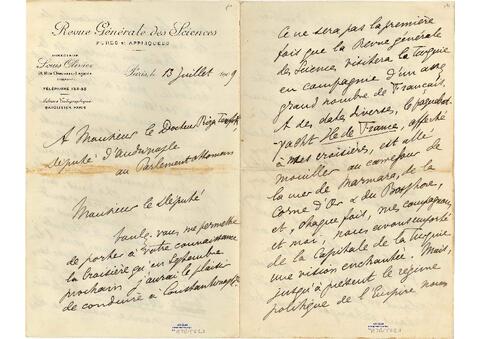 Revue Générale des Sciences
PURES ET APPLIQUÉES
DIRECTEUR
Louis Olivier
TÉLÉPHONE
Adresse Télégraphique
Paris, le 13 Juillet 1909
A Monsieur le Docteur Riza Tewfik,
député d'Andrinople
au Parlement ottoman
Monsieur le député
Voulez-vous me permettre
de porter à votre connaissance
la croisière qu'en Septembre
prochain j'aurai le plaisir
de conduire à Constantinople.
Ce ne sera pas la première
fois que la Revue générale
des Sciences visitera la Turquie
en compagnie d'un assez
grand nombre de Français.
A des dates diverses, le paquebot-
yacht Ile de France, affecté
à mes croisières, est allé
mouiller au carrefour de
la mer de Marmara, de la
Corne d'Or & du Bosphore,
et, chaque fois, mes compagnons
et moi, nous avons emporté
de la Capitale de la Turquie
une vision enchantée. Mais,
jusqu'à présent le régime
politique de l'Empire nous